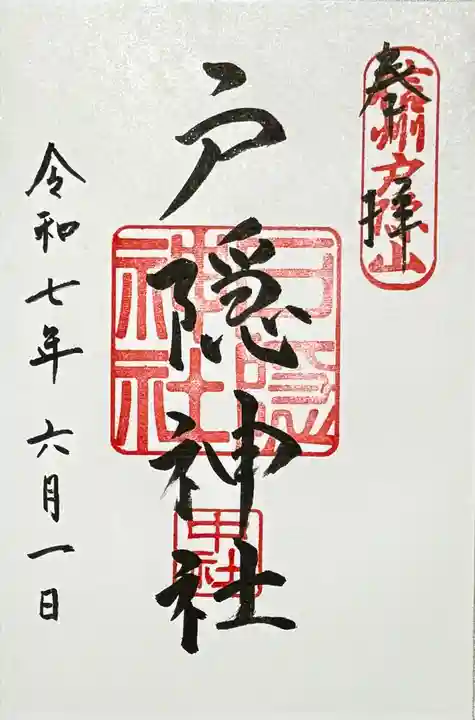 奉拝
信州戸隠山
戸隠神社
戸隠
神社
中社
令和七年六月一日